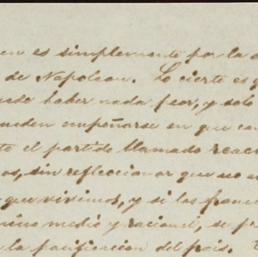 en es simplemente por la
de Napoleon. Lo cierte es q
uede haber nada peor, y solo
ueden empeñarse en que con
te el partido llamado reac
os, sin refleccionar que no es
que vivimos, y si los france
mino medio y racional, se pr
la pacificacion del pais.